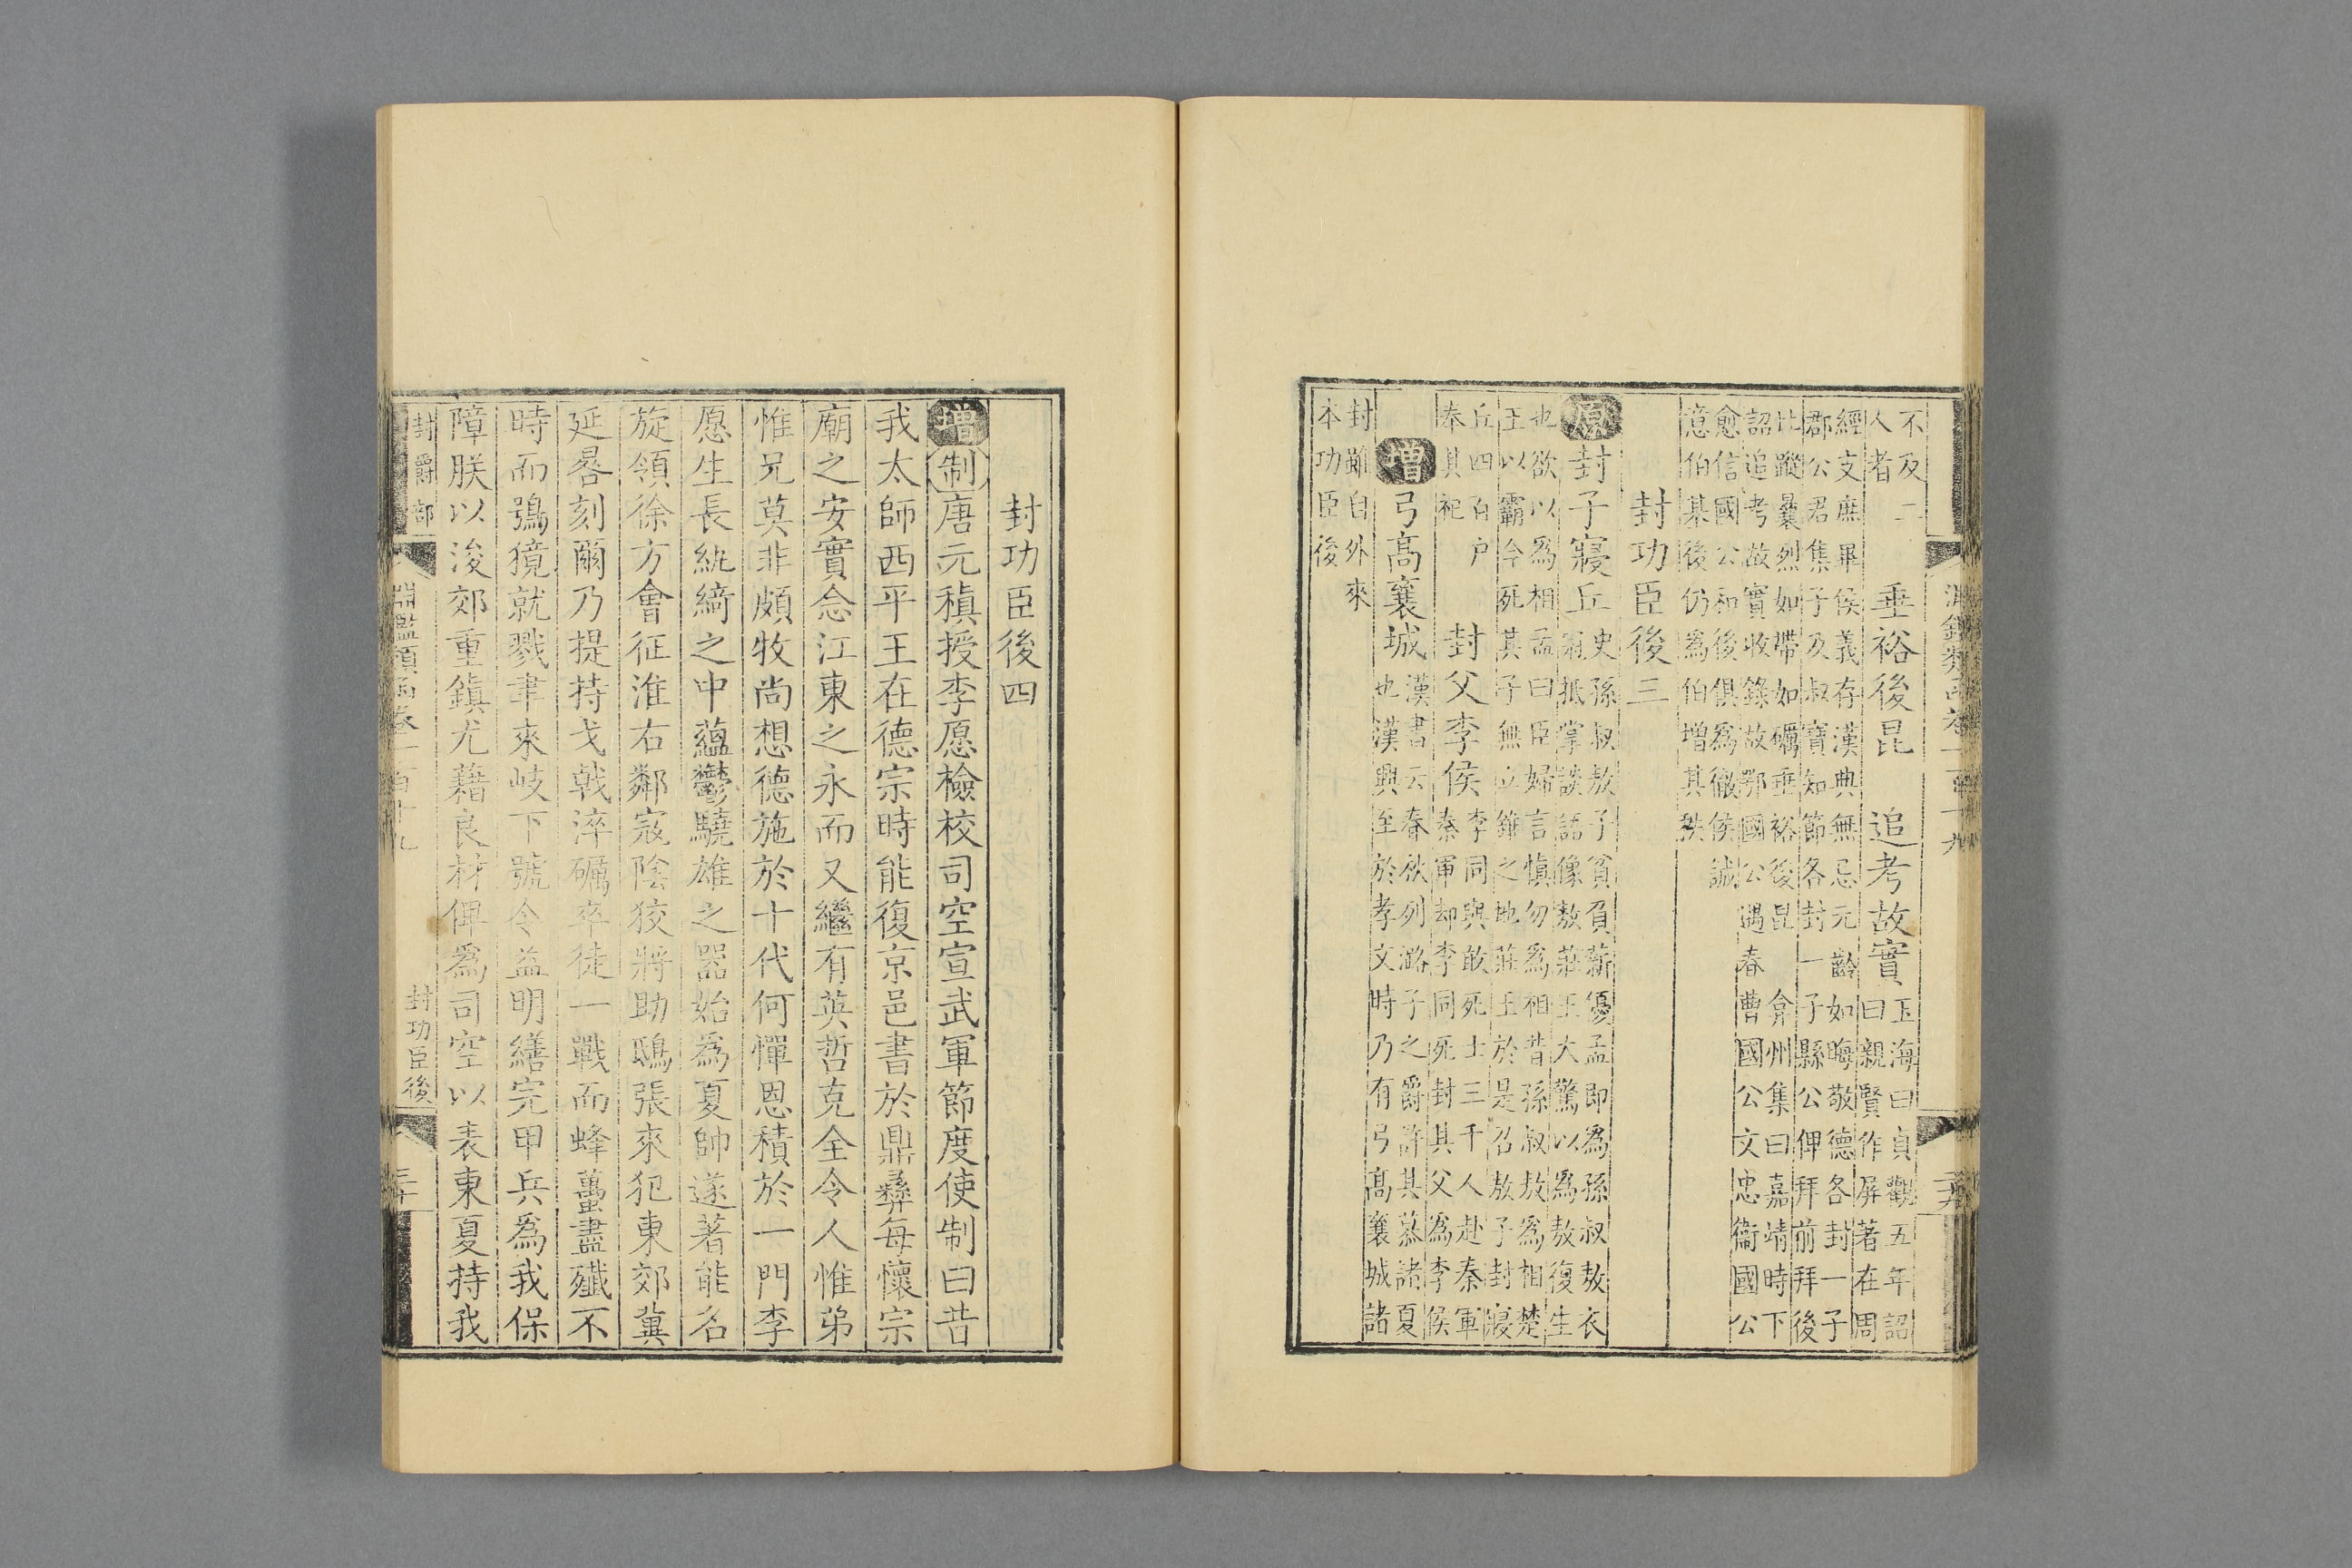 淵鑑類函卷一百十九 二十九
不及二
人者
垂裕後昆 追考故實
玉海曰貞觀五年詔
曰親賢作屏著在周
經文庶畢侯義存漢典無忌元齡如晦敬德各封一子
郡公君集子及叔寶知節各封一子縣公俾拜前拜後
比蹤曩烈如帶如礪垂裕後昆 弇州集曰嘉靖時下
詔追考故實收錄故鄂國公遇春曹國公文忠衞國公
愈信國公和後俱爲徹侯誠
意伯基後仍爲伯增其秩
封功臣後三
原封子寢丘
史孫叔敖子貧負薪優孟即爲孫叔敖衣
冠抵掌談語像敖莊王大驚以爲敖復生
也欲以爲相孟曰臣婦言慎勿爲相昔孫叔敖爲相楚
王以霸今死其子無立錐之地莊王於是召敖子封寢
丘四百户
奉其祀
封父李侯
李同與敢死士三千人赴秦軍
秦軍却李同死封其父爲李侯
增弓高襄城
漢書云春秋列潞子之爵許其慕諸夏
也漢興至於孝文時乃有弓高襄城諸
封雖自外來
本功臣後
封功臣後四
增制唐元稹授李愿檢校司空宣武軍節度使制曰昔
我太師西平王在德宗時能復京邑書於鼎彝每懷宗
廟之安實念江東之永而又繼有英哲克全令人惟弟
惟兄莫非頗牧尚想德施於十代何憚恩積於一門李
愿生長紈綺之中蘊鬱驍雄之器始爲夏帥遂著能名
旋領徐方會征淮右鄰寇陰狡將助鴟張來犯東郊冀
延晷刻爾乃提持戈戟淬礪卒徒一戰而蜂蠆盡殲不
時而鴞獍就戮聿來岐下號令益明繕完甲兵爲我保
障朕以浚郊重鎮尤藉良材俾爲司空以表東夏持我
封爵部 淵鑑類函卷一百十九 封功臣後 三十